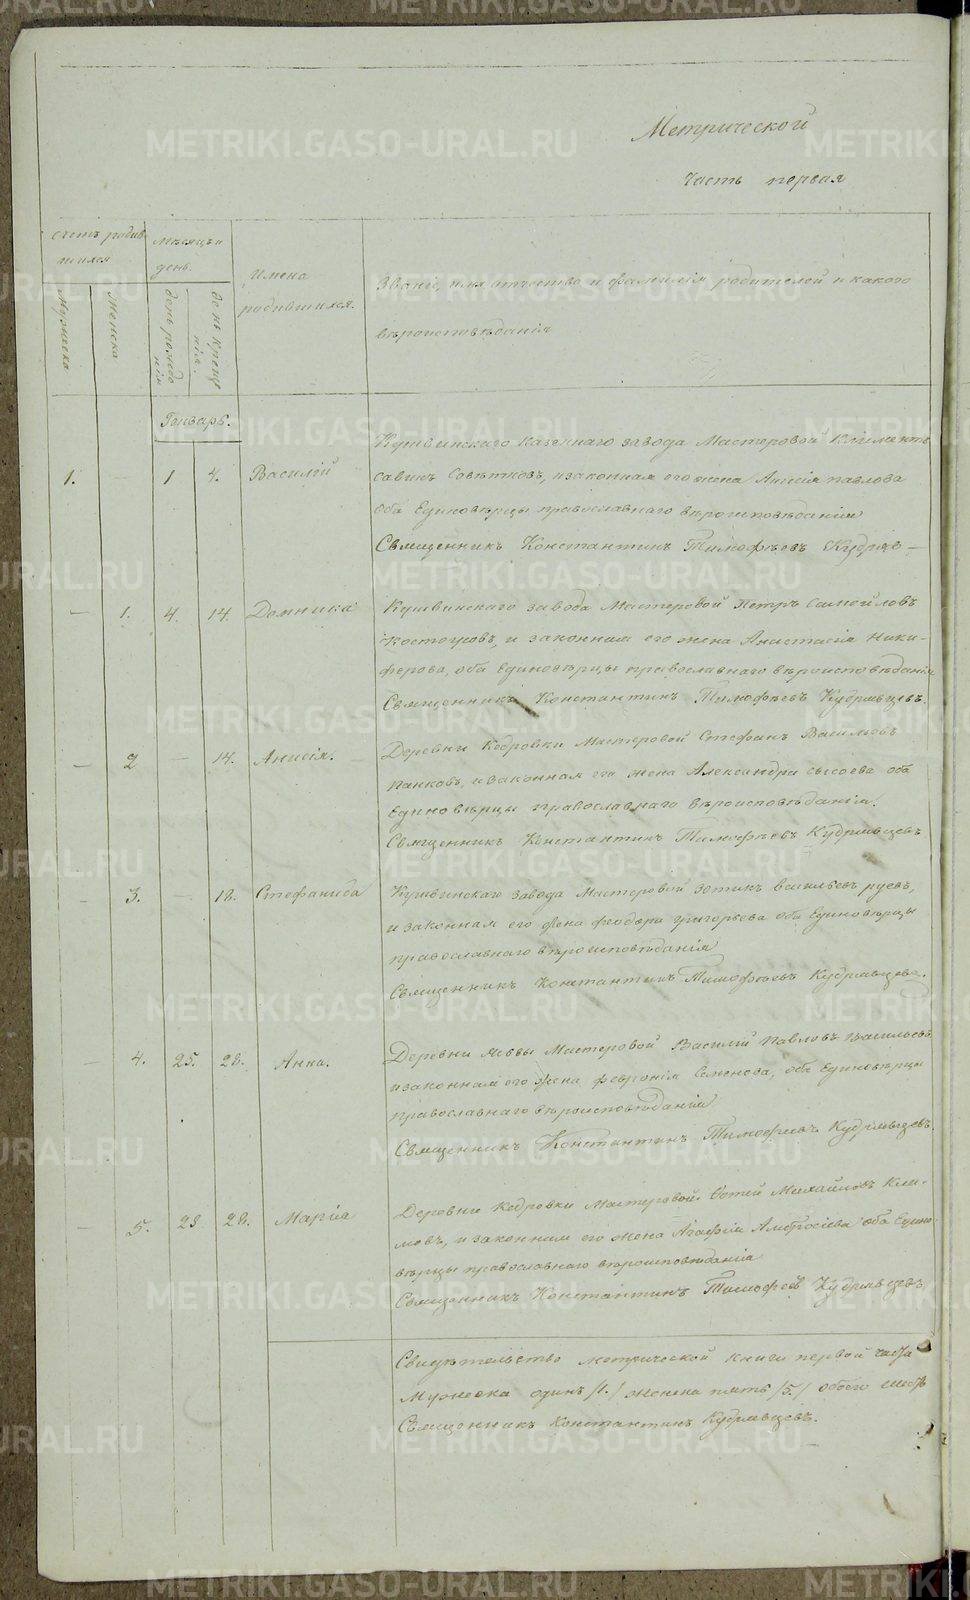 Метрической
Часть первая
счетъ родив-
шихся
мѣсяцъ и
день.
Мужеска
Женска
день рожде
нія
день креще
нія.
имена
родившихся.
Званіе, имя отчество и фамилія родителей и какого
вѣроисповѣданія
Генварь.
1. — 1 4. Василій
Кушвинскаго казеннаго завода Мастеровой Климентъ
Савинъ Совѣтковъ, и законная его жена Анисія павлова
оба Единовѣрцы православнаго вѣроисповѣданія
Священникъ Константинъ Тимофѣевъ Кудряв—
— 1. 4. 14. Домника
Кушвинскаго завода Мастеровой Петръ Самойловъ
Костоуровъ, и законная его жена Анастасія Ники-
ферова, оба Единовѣрцы православнаго вѣроисповѣданія
Священникъ Константинъ Тимофѣевъ Кудрявцевъ.
— 2 — 14. Анисія.
Деревни Кедровки Мастеровой Стефанъ Васильевъ
Панковъ, и законная его жена Александра сысоева оба
Единовѣрцы православнаго вѣроисповѣданія.
Священникъ Константинъ Тимофѣевъ Кудрявцевъ
— 3. — 18. Стефанида
Кушвинскаго завода Мастеровой Зотикъ васильевъ руевъ,
и законная его жена феодора григорьева оба Единовѣрцы
православнаго вѣроисповѣданія
Священникъ Константинъ Тимофѣевъ Кудрявцевъ.
— 4. 25. 28. Анна.
Деревни Мастеровой Василій Павловъ Васильевъ
и законная его жена феvронія Семенова, оба Единовѣрцы
православнаго вѣроисповѣданія
Священникъ Константинъ Тимофеевъ Кудрявцевъ.
— 5. 23. 28. Марія
Деревни Кедровки Мастеровой Фотей Михайловъ Кли-
мовъ, и законная его жена Агафія Амвросіева оба Едино
вѣрцы православнаго вѣроисповѣданія
Священникъ Константинъ Тимофеевъ Кудрявцевъ
Свидѣтельство метрической книги первой части
Мужеска одинъ /1./ женска пять /5./ обоего шесть
Священникъ Константинъ Кудрявцевъ.
METRIKI.GASO-URAL.RU